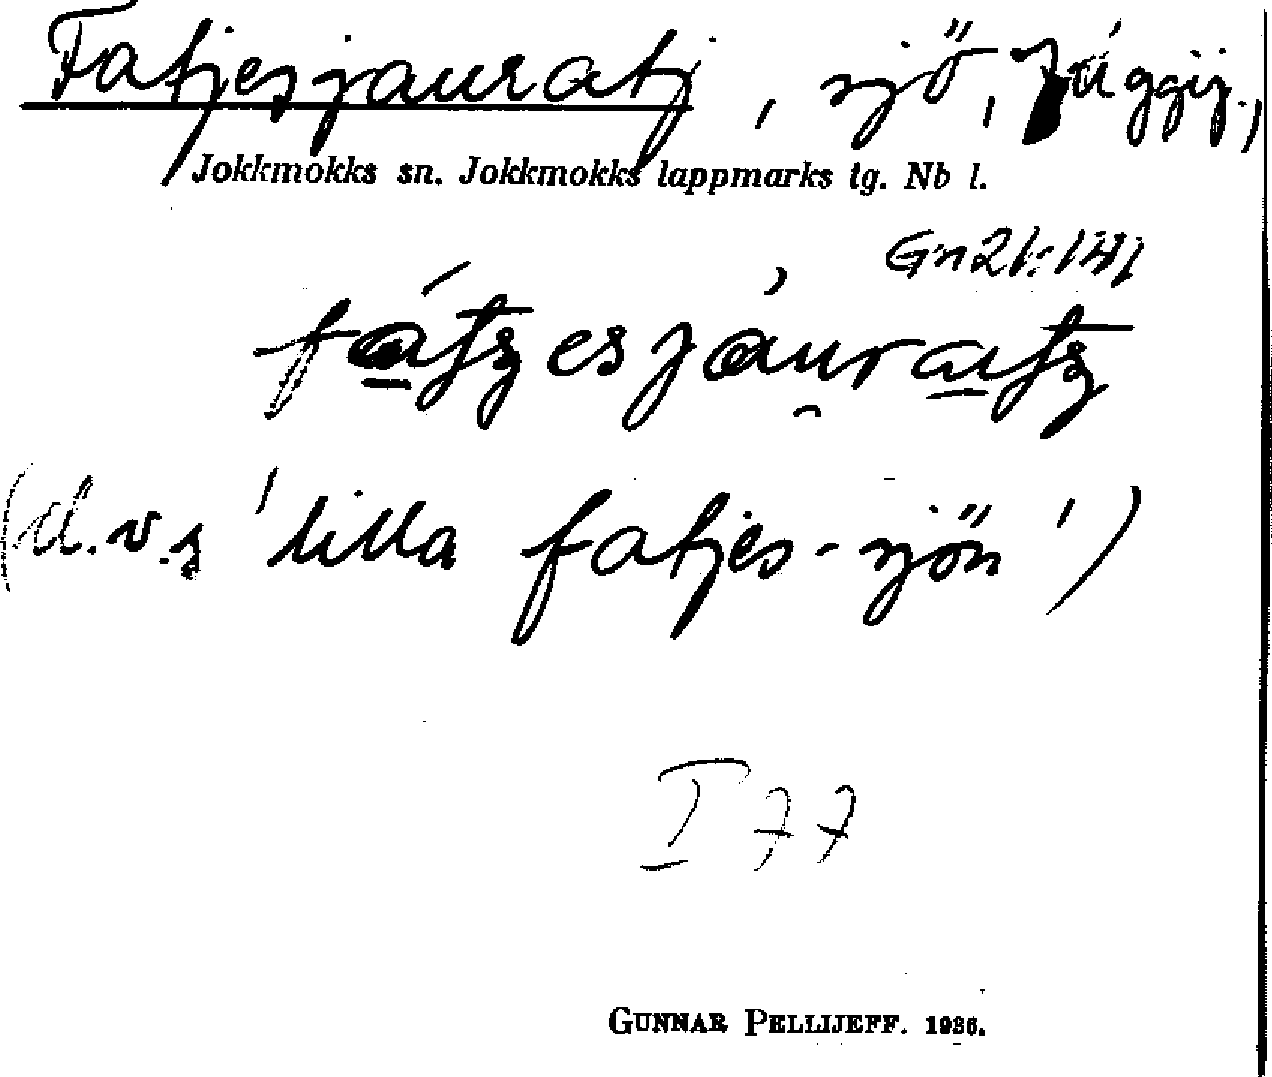 Fatjesjauratj, sjö,
Jokkmokks sn. Jokkmokks lappmarks tg. Nb l.
fátʒesjáuratʒ
(d.v.s 'lilla fatjes-sjön')
I 77
GUNNAR PELLIJEFF. 1936.